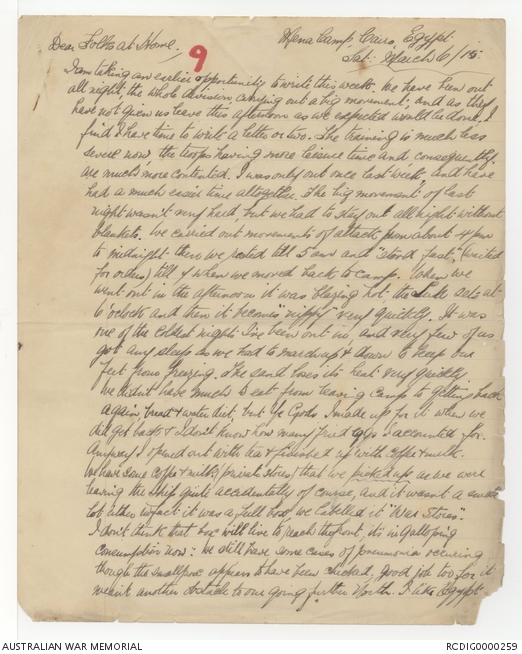 Mena Camp, Cairo, Egypt.
Dear Folks at Home, 9 Sat: March 6/15.
I am taking an earlier opportunity to write this week. We have been out
all night, the whole division carrying out a big movement; and as they
have not given us leave this afternoon as we expected would be done, I
find I have time to write a letter or two. The training is much less
severe now, the troops having more leisure time and consequently
are much more contented. I was only out once last week, and have
had a much easier time altogether. The big movement of last
night wasn't very hard, but we had to stay out all night without
blankets. We carried out movements of attack from about 4 pm
to midnight then we rested till 5 am and "stood fast", (waited
for orders) till 7 when we moved back to camp. When we
went out in the afternoon it was blazing hot: the sun sets at
6 o'clock and then it becomes "nippy" very quickly. It was
one of the coldest nights I've been out in, and very few of us
got any sleep as we had to march up & down to keep our
feet from freezing. The sand loses its heat very quickly.
We didn't have much to eat from leaving camp to getting back
again, bread & water diet, but Ye Gods I made up for it when we
did get back & I don't know how many fried eggs I accounted for.
Anyway I opened out with tea & finished up with coffee & milk.
We have some coffee & milk (private stores) that we picked up as we were
leaving the ship quite accidentally of course, and it wasn't a small
lot either in fact it was a full box, we labelled it "War Stores".
I don't think that box will live to reach the front, it's in galloping
consumption now: We still have some cases of pneumonia occuring
though the smallpox appears to have been checked, good job too for it
meant another obstacle to our going further North. I like Egypt
AUSTRALIAN WAR MEMORIAL RCDIG0000259